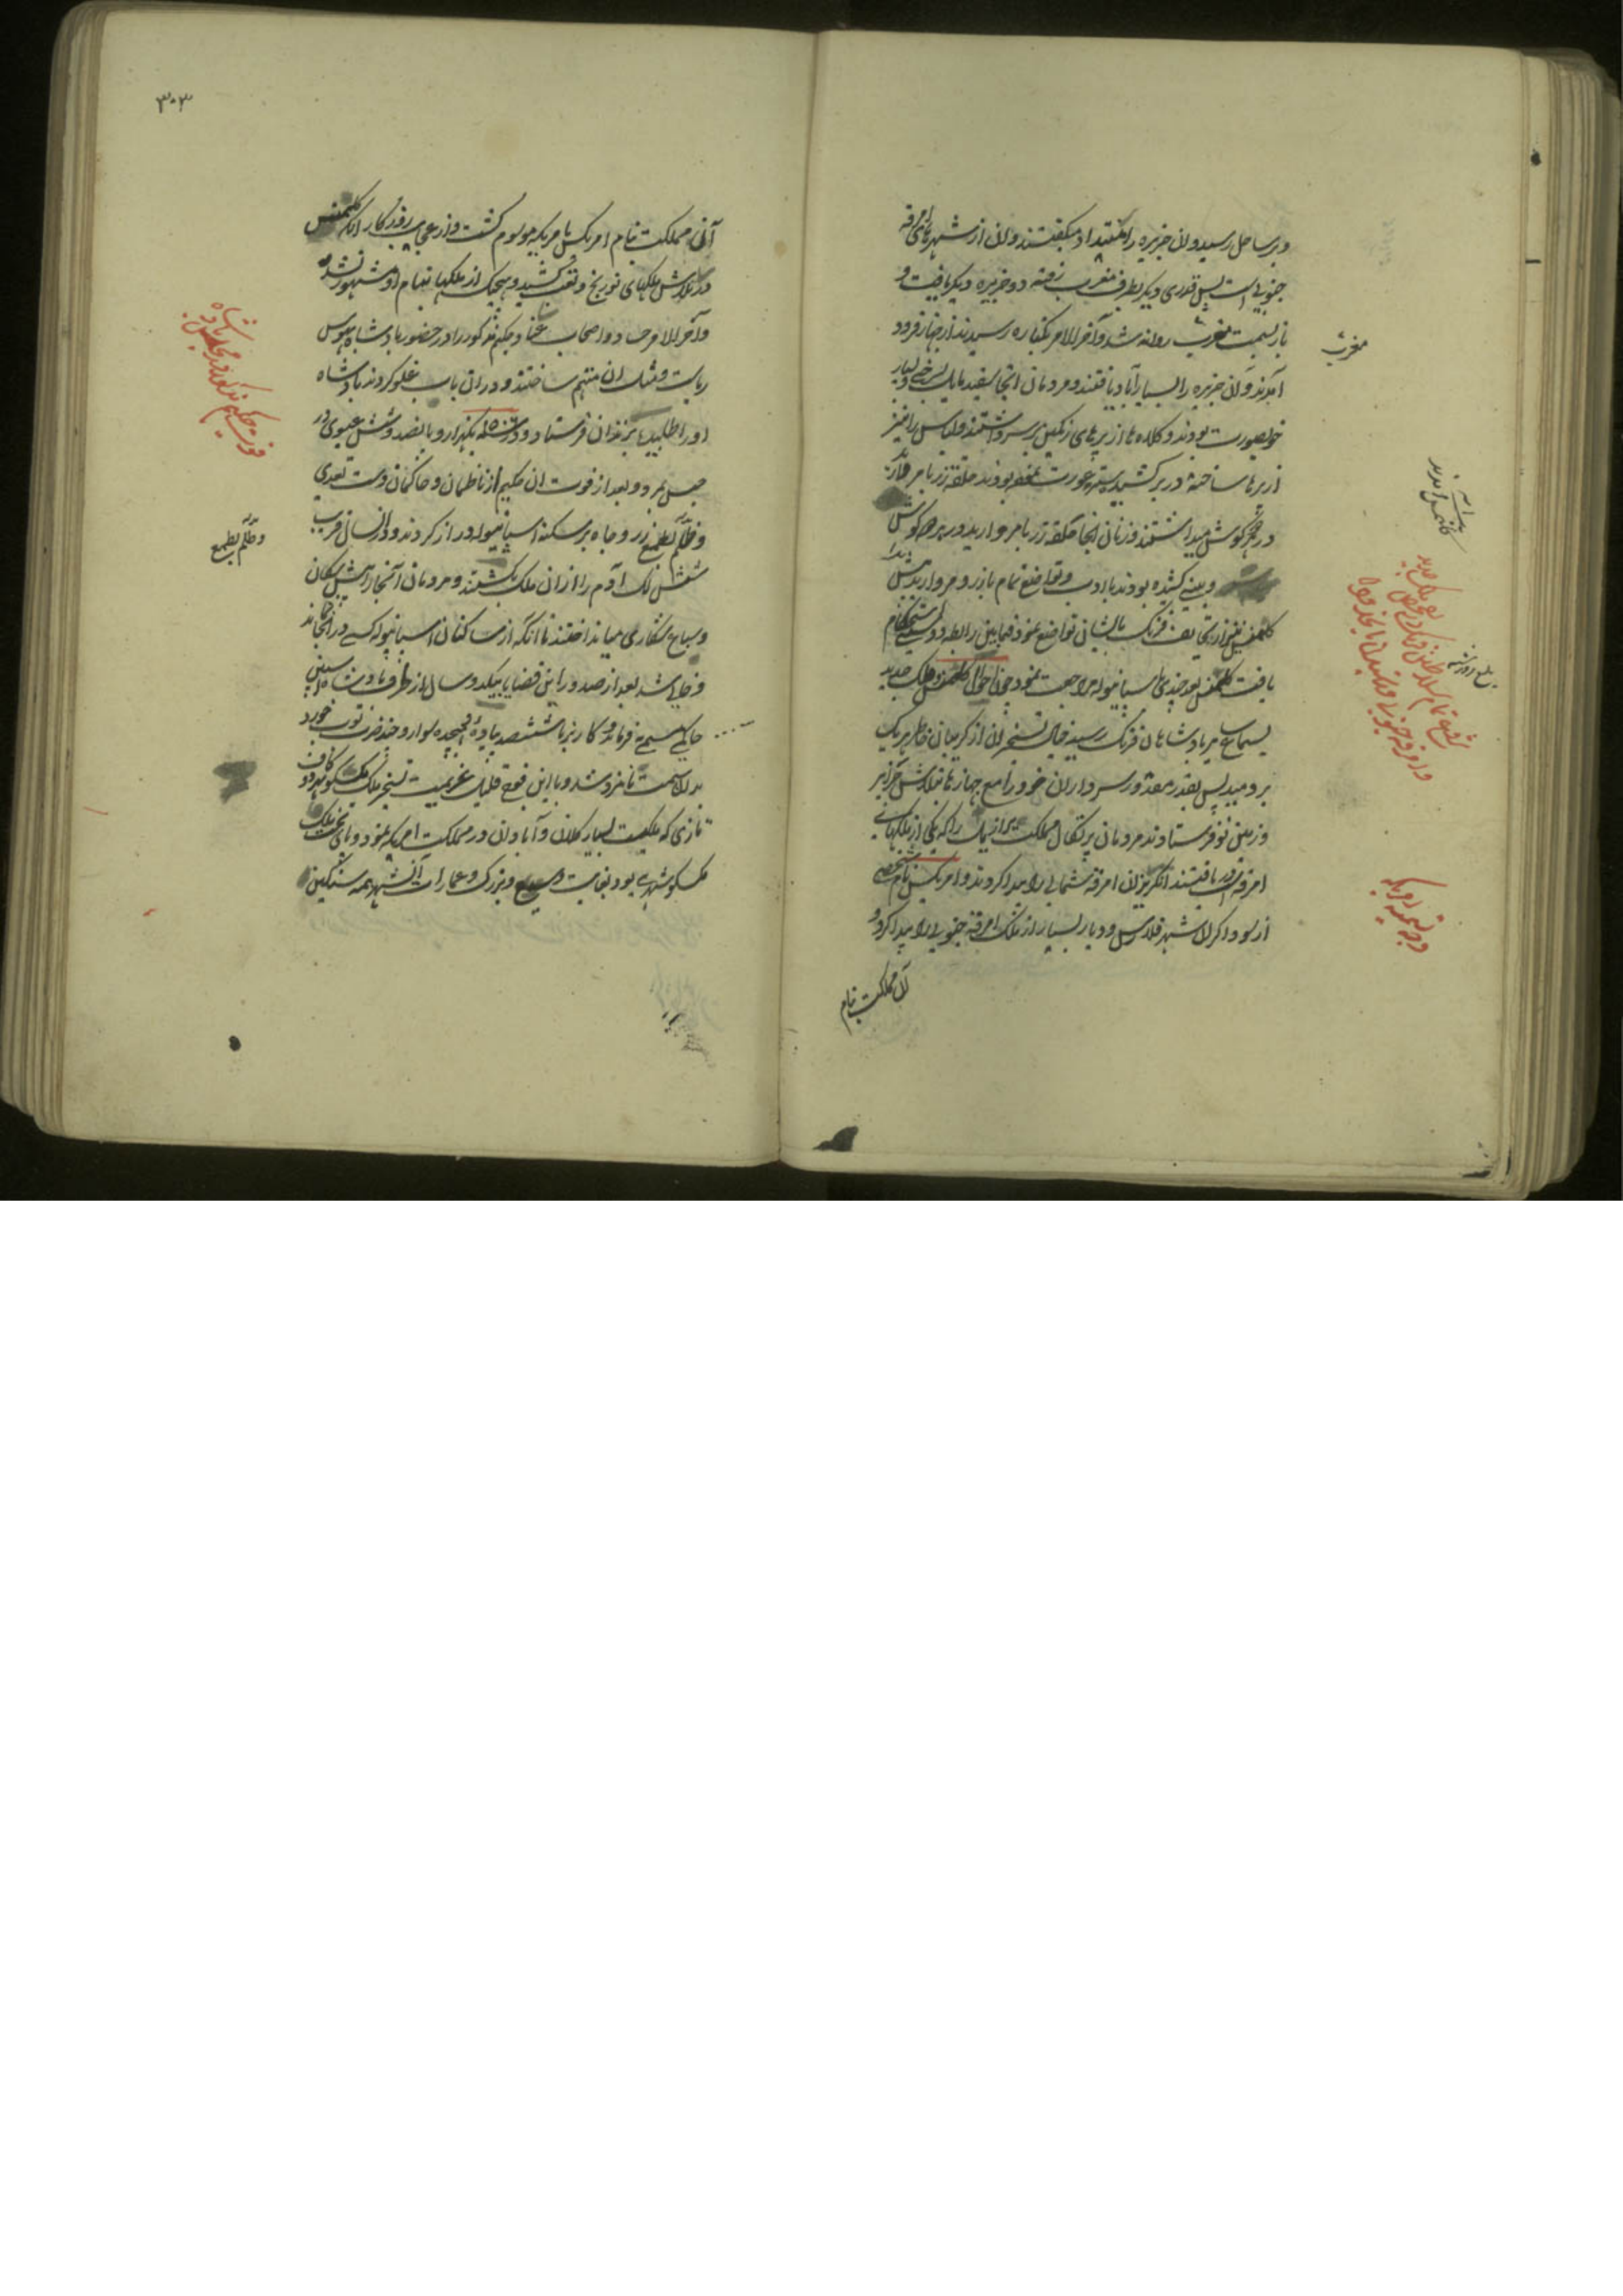 و بر ساحل رسید و ان جزیره را میگفتند و ان از شهرهای امرقه
جنوبی است پس قدری دیکر بطرف مغرب رفته دو جزیره دیکر یافت و
باز بسمت مغرب روانه شد و آخر الامر بکناره رسیدند از جهاز فرود
آمدند و ان جزیره را بسیار آباد یافتند و مردمان انجا سفید مایل بسرخی و بسیار
خوبصورت بودند و کلاه ها از پرهای رنکین بر سر داشتند و لباس را نیز
از پرها ساخته در بر کشیده ستر عورت نموده بودند حلقه زر با مروارید
در هر کوش میداشتند و زنان انجا حلقه زر با مروارید در هر کوش
و بینی کشیده بودند با ادب و تواضع تمام با زر و مروارید پیش
کلمنس نیز از تحایف فرنک بایشان تواضع نمود فیمابین رابطه دوستی استحکام
یافت کلمنس بعد چندی باسپانیوله مراجعت نمود چون احوال کلمنس و ملک جدید
بسماع هر پادشاهان فرنک رسید خیال تسخیر ان از کریبان خاطر هر یک
بر دمید پس بقدر مقدور سرداران خود را مع جهازها بتلاش جزایر
و زمین نو فرستادند مردمان پرتکال مملکت برازیل را که یکی از ملکهای
امرقه است یافتند انکریزان امرقه شمالی را پیدا کردند و امریکس نام شخصی
از سوداکران شهر فلارس و دیار بسیار از ملک امرقه جنوبی را پیدا کرد و
آن مملکت بنام
مغرب
وجه تسمیه امریکه
۳۰۳
آن مملکت بنام امریکس بامریکه موسوم کشت و از عجایب روزکار انکه کلمنس
در تلاش ملکهای نو رنج و تعب کشید و هیچیک از ملکها بنام او مشهور نشد
و آخر الامر حساد و اصحاب عناد حکیم مذکور را در حضور پادشاه بهوس
ریاست و مثل ان متهم ساختند و در ان باب غلو کردند پادشاه
او را طلبیده بزندان فرستاد و در سنه یکهزار و پانصد و شش عیسوی در
حبس بمرد و بعد از فوت ان حکیم از ناظمان و حاکمان دست تعدی
و ظلم بطمع زر و جاه بر سکنه اسپانیوله دراز کردند و در ان سال قریب
شش لک آدم را از ان ملک بکشتند و مردمان آنجا را پیش سکان
و سباع شکاری میانداختند تا انکه از ساکنان اسپانیوله کسی در انجا نماند
و خالی شد بعد از صدور این قضایا بیکدو سال از طرف پادشاه اسپین
حاکمی مسمی بفرناندو کارتز با ششصد پیاده و هیجده سوار و چند ضرب توپ خورد
بدان سمت نامزد شد و با این فوج قلیل عزیمت تسخیر ملک مکسکو نمود
تازی که ملکیست بسیار کلان و آبادان در مملکت امریکه نمود و پای تخت ملک
مکسکو شهری بود بغایت وسیع و بزرک و عمارات آن شهر همه سنکین
و ظلم بطمع